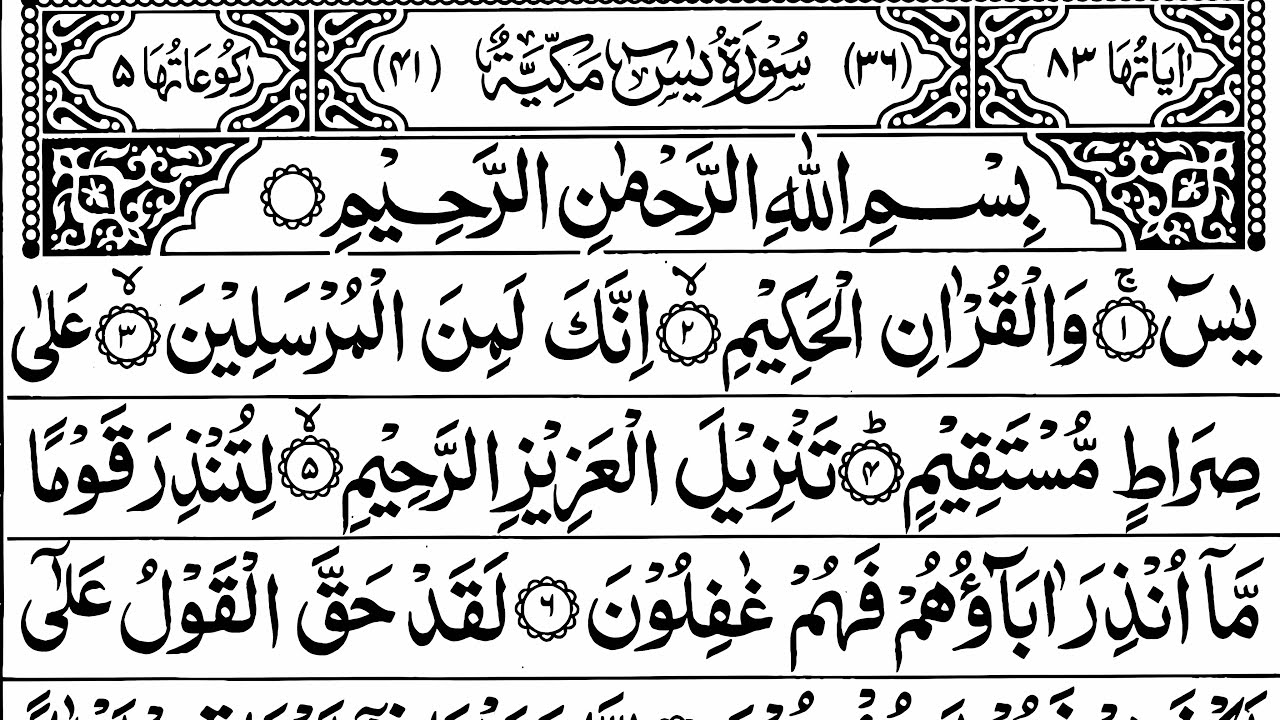 اٰيَاتُهَا ٨٣ (٣٦) سُوۡرَةُ يٰسٓ مَكِّيَّةٌ (۴۱) رُكُوۡعَاتُهَا ۵
بِسۡمِ اللهِ الرَّحۡمٰنِ الرَّحِيۡمِ
يٰسٓ ۚ‏﴿۱﴾ وَالۡقُرۡاٰنِ الۡحَكِيۡمِ ۙ‏﴿۲﴾ اِنَّكَ لَمِنَ الۡمُرۡسَلِيۡنَ ۙ‏﴿۳﴾ عَلٰى
صِرَاطٍ مُّسۡتَقِيۡمٍ ؕ‏﴿۴﴾ تَنۡزِيۡلَ الۡعَزِيۡزِ الرَّحِيۡمِ ۙ‏﴿۵﴾ لِتُنۡذِرَ قَوۡمًا
مَّاۤ اُنۡذِرَ اٰبَآؤُهُمۡ فَهُمۡ غٰفِلُوۡنَ ﴿۶﴾ لَقَدۡ حَقَّ الۡقَوۡلُ عَلٰٓى